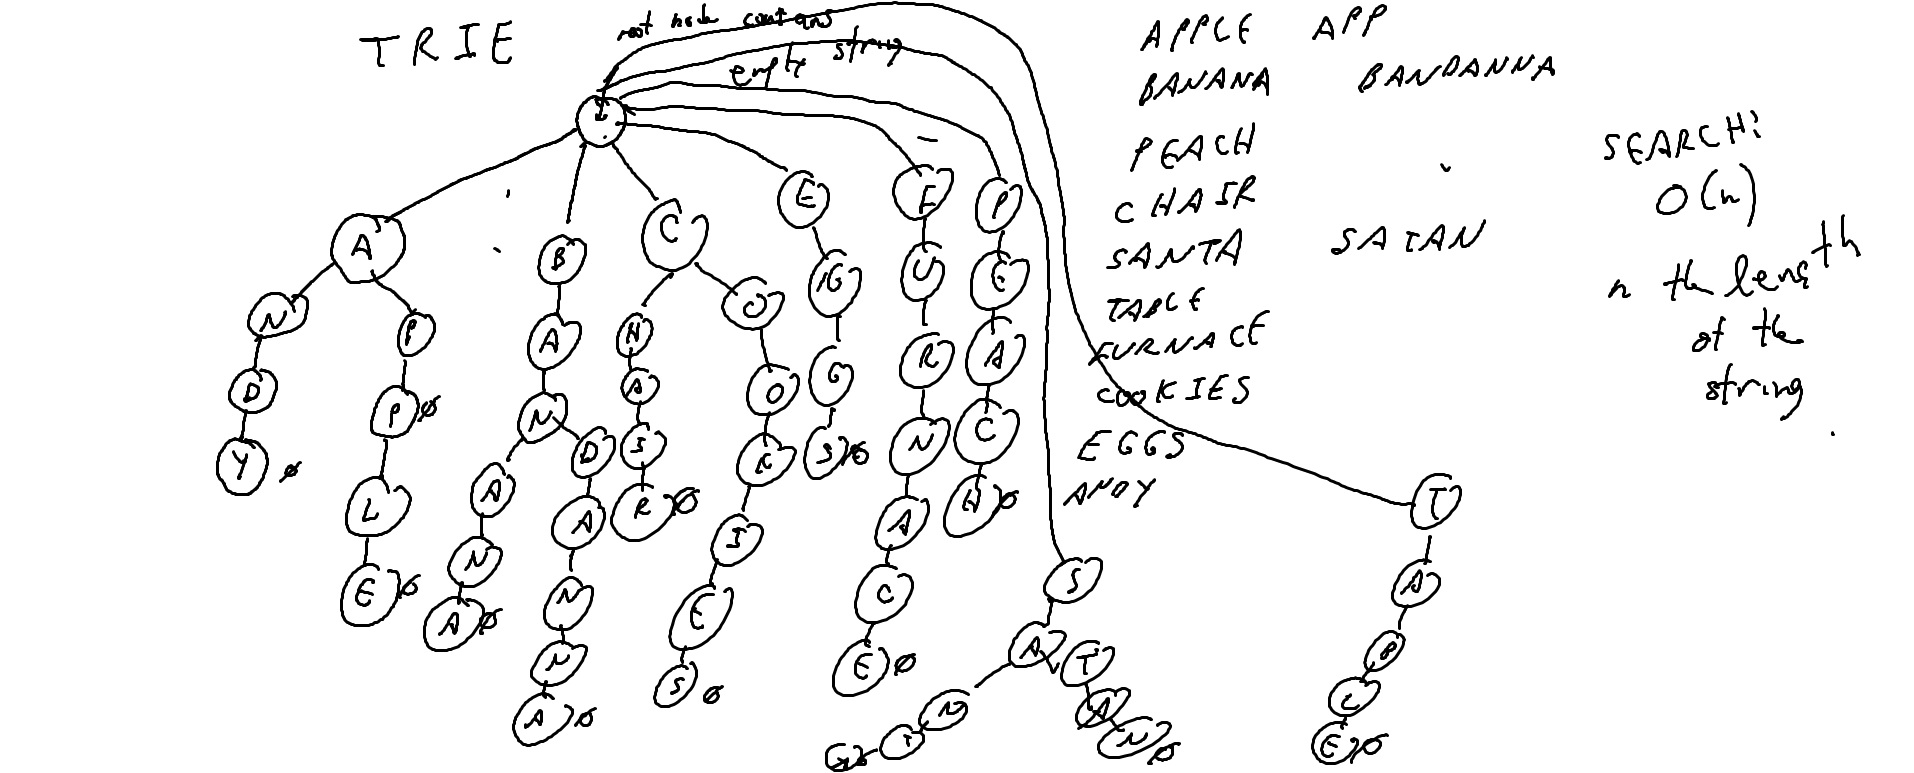 TRIE
root node contains
empty string
APPLE APP
BANANA BANDANNA
PEACH
CHAIR
SANTA SATAN
TABLE
FURNACE
COOKIES
EGGS
ANDY
SEARCH:
O(n)
n the length
of the
string
A
N
D
Y ∅
P
P ∅
L
E ∅
B
A
N
A
N
A ∅
D
A
N
N
A ∅
C
H
A
I
R ∅
O
O
K
I
E
S ∅
E
G
G
S ∅
F
U
R
N
A
C
E ∅
P
E
A
C
H ∅
S
A
N
T
A ∅
T
A
N ∅
T
A
B
L
E ∅